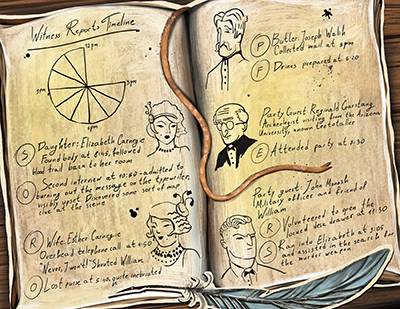 Witness Reports Timeline
12pm
9pm
3pm
6pm
S
Daughter: Elizabeth Carnegie
Found body at 8:45, followed
blood trail back to her room
O
Second interview at 10:40 -admitted to
burning up the message on the typewriter,
visibly upset. Discovered some sort of map
clue at the scene
R
Wife: Esther Carnegie
Overhead telephone call at 4:50
"Never, I won't!" Shouted William
O
Lost purse at 5:40, quite inebriated
P
Butler Joseph Walsh
Collected mail at 2pm
F
Drinks prepared at 6:20
Party Guest Reginald Courtstang
Archeologist visiting from the Arizona
University, known teetotaller
E
Attended party at 5:30
Party guest: John Marsh
Military officer and friend of
William
R
Volunteered to open the
locked desk drawer at 9:30
S
Ran into Elizabeth at 9:06
and assisted in the search for
the murder weapon